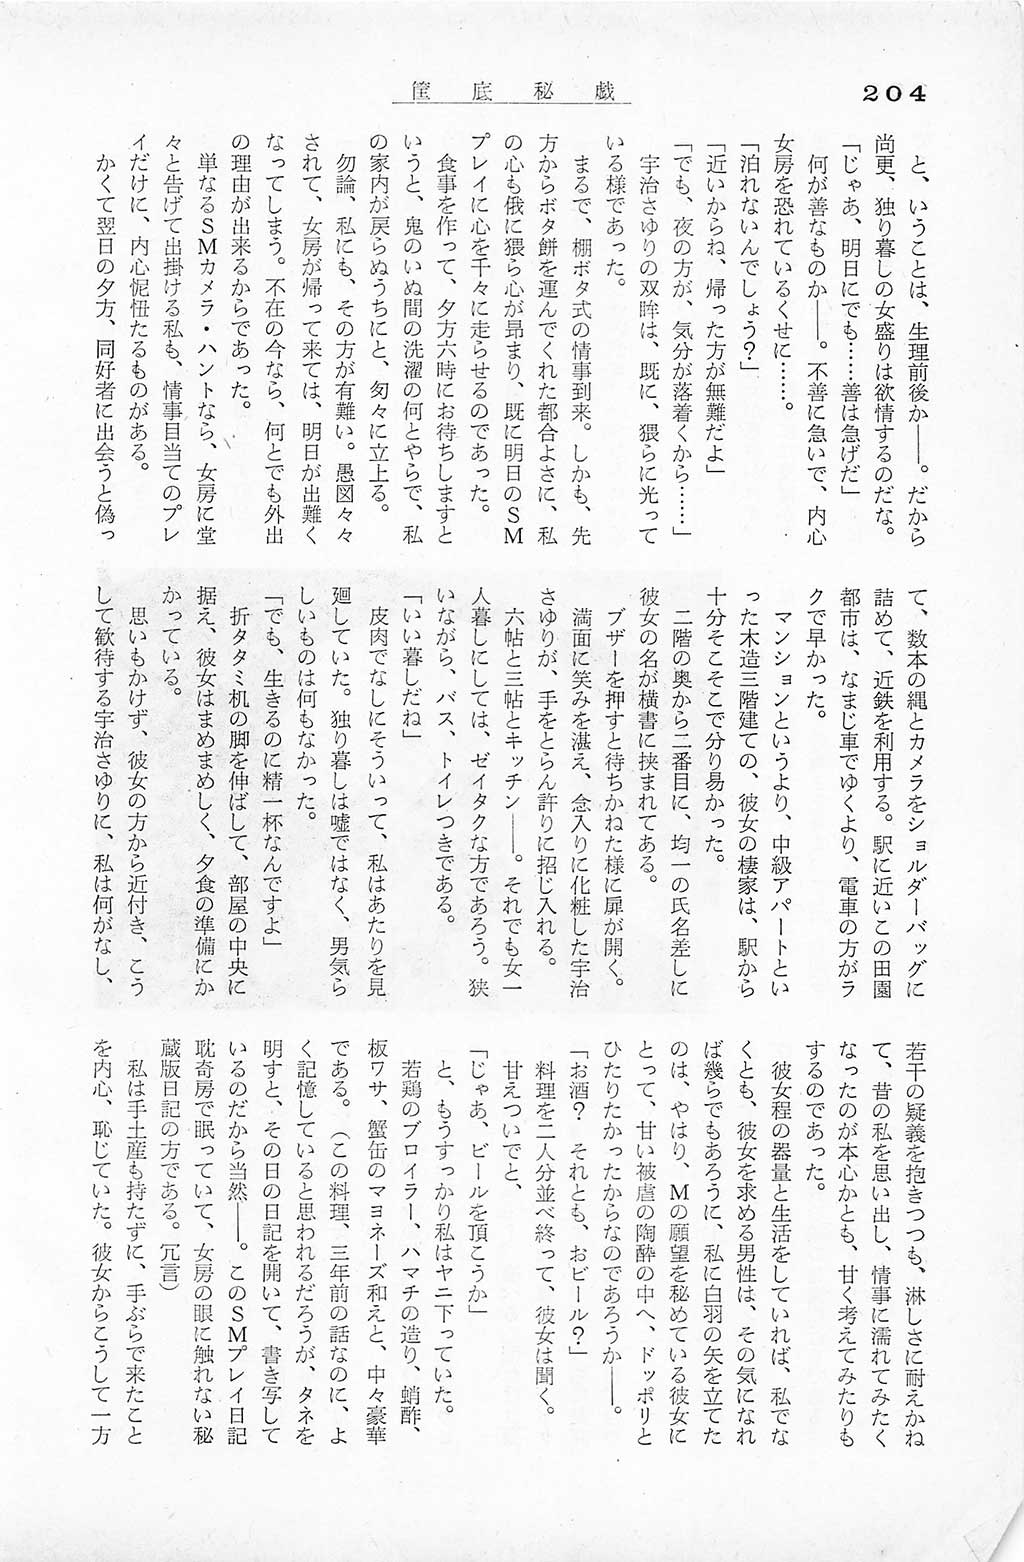 204
筐底秘戯
と、いうことは、生理前後か――。だから
尚更、独り暮しの女盛りは欲情するのだな。
「じゃあ、明日にでも……善は急げだ」
何が善なものか――。不善に急いで、内心
女房を恐れているくせに……。
「泊れないんでしょう？」
「近いからね、帰った方が無難だよ」
「でも、夜の方が、気分が落着くから……」
宇治さゆりの双眸は、既に、猥らに光って
いる様であった。
まるで、棚ボタ式の情事到来。しかも、先
方からボタ餅を運んでくれた都合よさに、私
の心も俄に猥ら心が昂まり、既に明日のＳＭ
プレイに心を千々に走らせるのであった。
食事を作って、夕方六時にお待ちしますと
いうと、鬼のいぬ間の洗濯の何とやらで、私
の家内が戻らぬうちにと、匆々に立上る。
勿論、私にも、その方が有難い。愚図々々
されて、女房が帰って来ては、明日が出難く
なってしまう。不在の今なら、何とでも外出
の理由が出来るからであった。
単なるＳＭカメラ・ハントなら、女房に堂
々と告げて出掛ける私も、情事目当てのプレ
イだけに、内心怩忸たるものがある。
かくて翌日の夕方、同好者に出会うと偽っ
て、数本の縄とカメラをショルダーバッグに
詰めて、近鉄を利用する。駅に近いこの田園
都市は、なまじ車でゆくより、電車の方がラ
クで早かった。
マンションというより、中級アパートとい
った木造三階建ての、彼女の棲家は、駅から
十分そこそこで分り易かった。
二階の奥から二番目に、均一の氏名差しに
彼女の名が横書に挟まれてある。
ブザーを押すと待ちかねた様に扉が開く。
満面に笑みを湛え、念入りに化粧した宇治
さゆりが、手をとらん許りに招じ入れる。
六帖と三帖とキッチン――。それでも女一
人暮しにしては、ゼイタクな方であろう。狭
いながら、バス、トイレつきである。
「いい暮しだね」
皮肉でなしにそういって、私はあたりを見
廻していた。独り暮しは嘘ではなく、男気ら
しいものは何もなかった。
「でも、生きるのに精一杯なんですよ」
折タタミ机の脚を伸ばして、部屋の中央に
据え、彼女はまめまめしく、夕食の準備にか
かっている。
思いもかけず、彼女の方から近付き、こう
して歓待する宇治さゆりに、私は何がなし、
若干の疑義を抱きつつも、淋しさに耐えかね
て、昔の私を思い出し、情事に濡れてみたく
なったのが本心かとも、甘く考えてみたりも
するのであった。
彼女程の器量と生活をしていれば、私でな
くとも、彼女を求める男性は、その気になれ
ば幾らでもあろうに、私に白羽の矢を立てた
のは、やはり、Ｍの願望を秘めている彼女に
とって、甘い被虐の陶酔の中へ、ドッポリと
ひたりたかったからなのであろうか――。
「お酒？　それとも、おビール？」
料理を二人分並べ終って、彼女は聞く。
甘えついでと、
「じゃあ、ビールを頂こうか」
と、もうすっかり私はヤニ下っていた。
若鶏のブロイラー、ハマチの造り、蛸酢、
板ワサ、蟹缶のマヨネーズ和えと、中々豪華
である。（この料理、三年前の話なのに、よ
く記憶していると思われるだろうが、タネを
明すと、その日の日記を開いて、書き写して
いるのだから当然――。このＳＭプレイ日記
耽奇房で眠っていて、女房の眼に触れない秘
蔵版日記の方である。冗言）
私は手土産も持たずに、手ぶらで来たこと
を内心、恥じていた。彼女からこうして一方